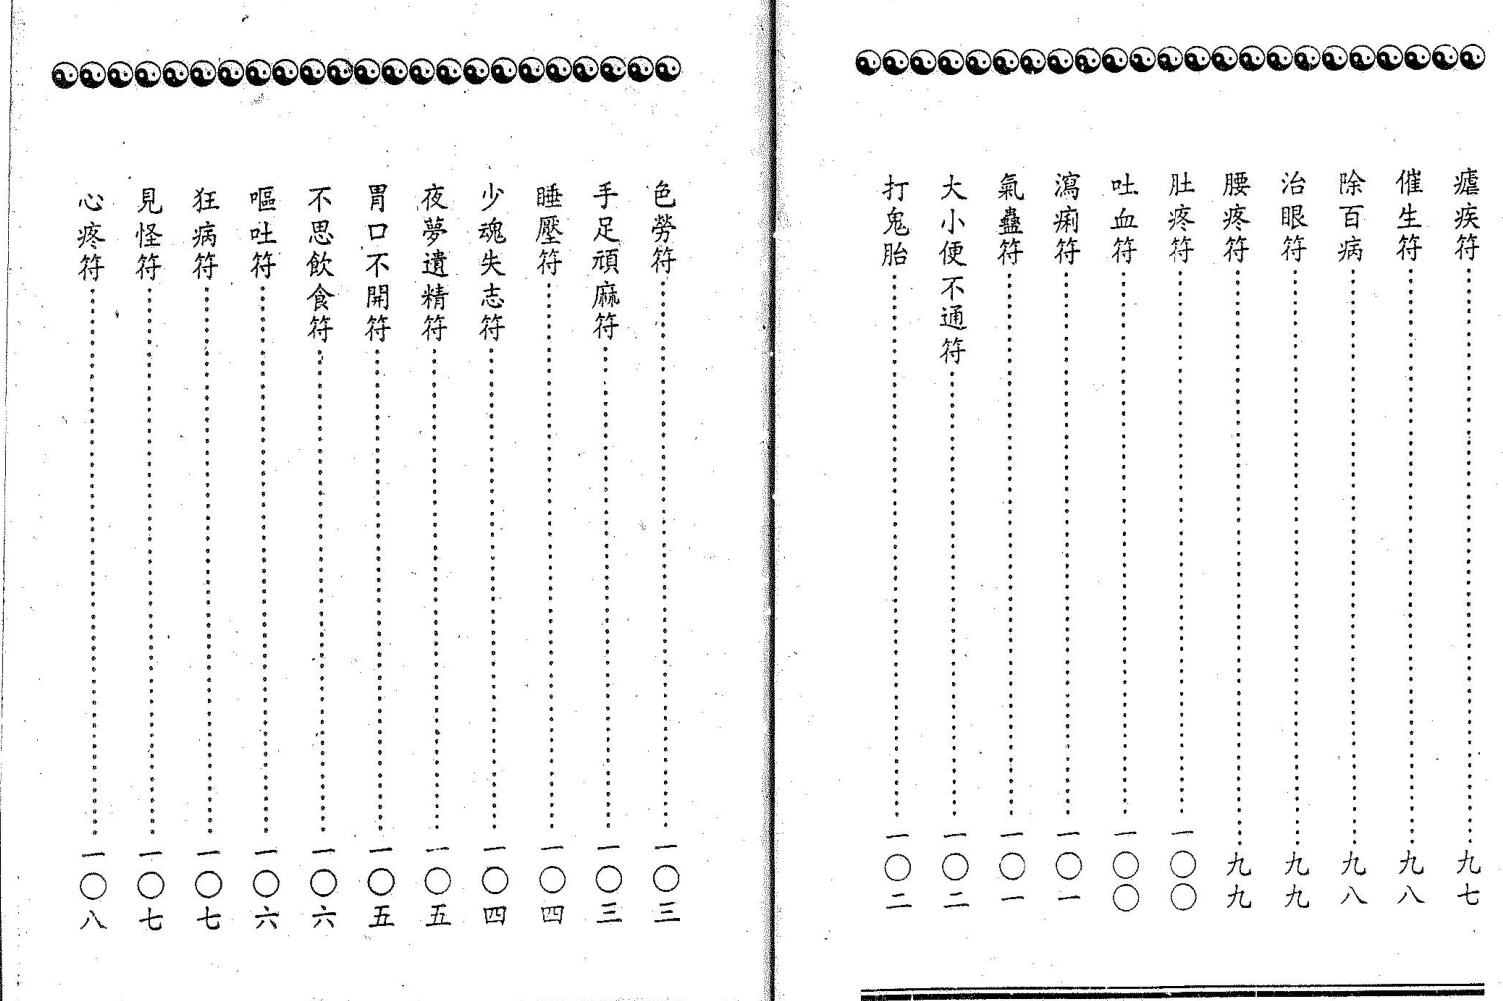 瘧疾符……九七
催生符……九八
除百病……九八
治眼符……九九
腰疼符……九九
肚疼符……一〇〇
吐血符……一〇〇
瀉痢符……一〇一
氣蠱符……一〇一
大小便不通符……一〇二
打鬼胎……一〇二
色勞符……一〇三
手足頑麻符……一〇三
睡壓符……一〇四
少魂失志符……一〇四
夜夢遺精符……一〇五
胃口不開符……一〇五
不思飲食符……一〇六
嘔吐符……一〇六
狂病符……一〇七
見怪符……一〇七
心疼符……一〇八